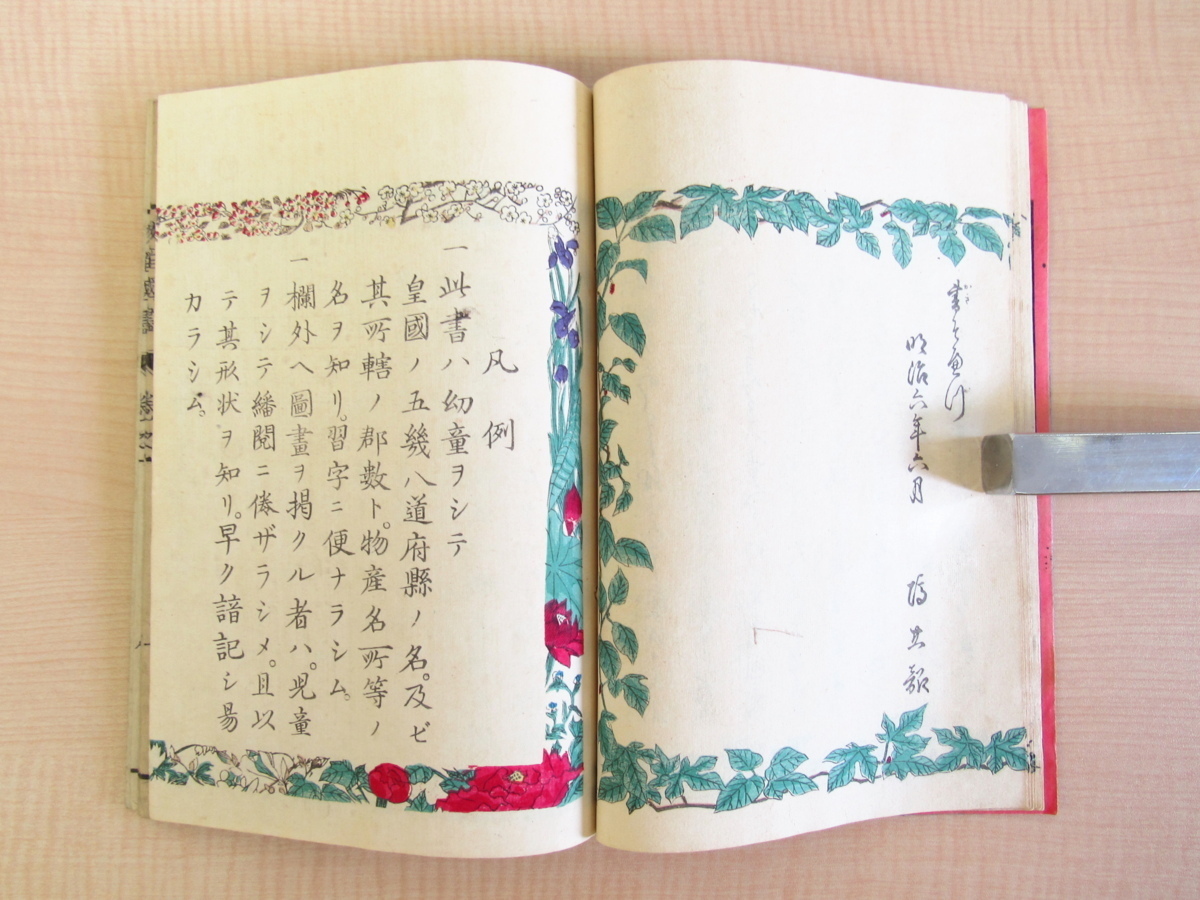 明治六年六月
凡例
一此書ハ幼童ヲシテ
皇國ノ五畿八道府縣ノ名。及ビ
其所轄ノ郡數ト。物産名所等ノ
名ヲ知リ。習字ニ便ナラシム。
一欄外ヘ圖畫ヲ掲クル者ハ。児童
ヲシテ繙閲ニ倦ザラシメ。且以
テ其形状ヲ知リ。早ク諳記シ易
カラシム。